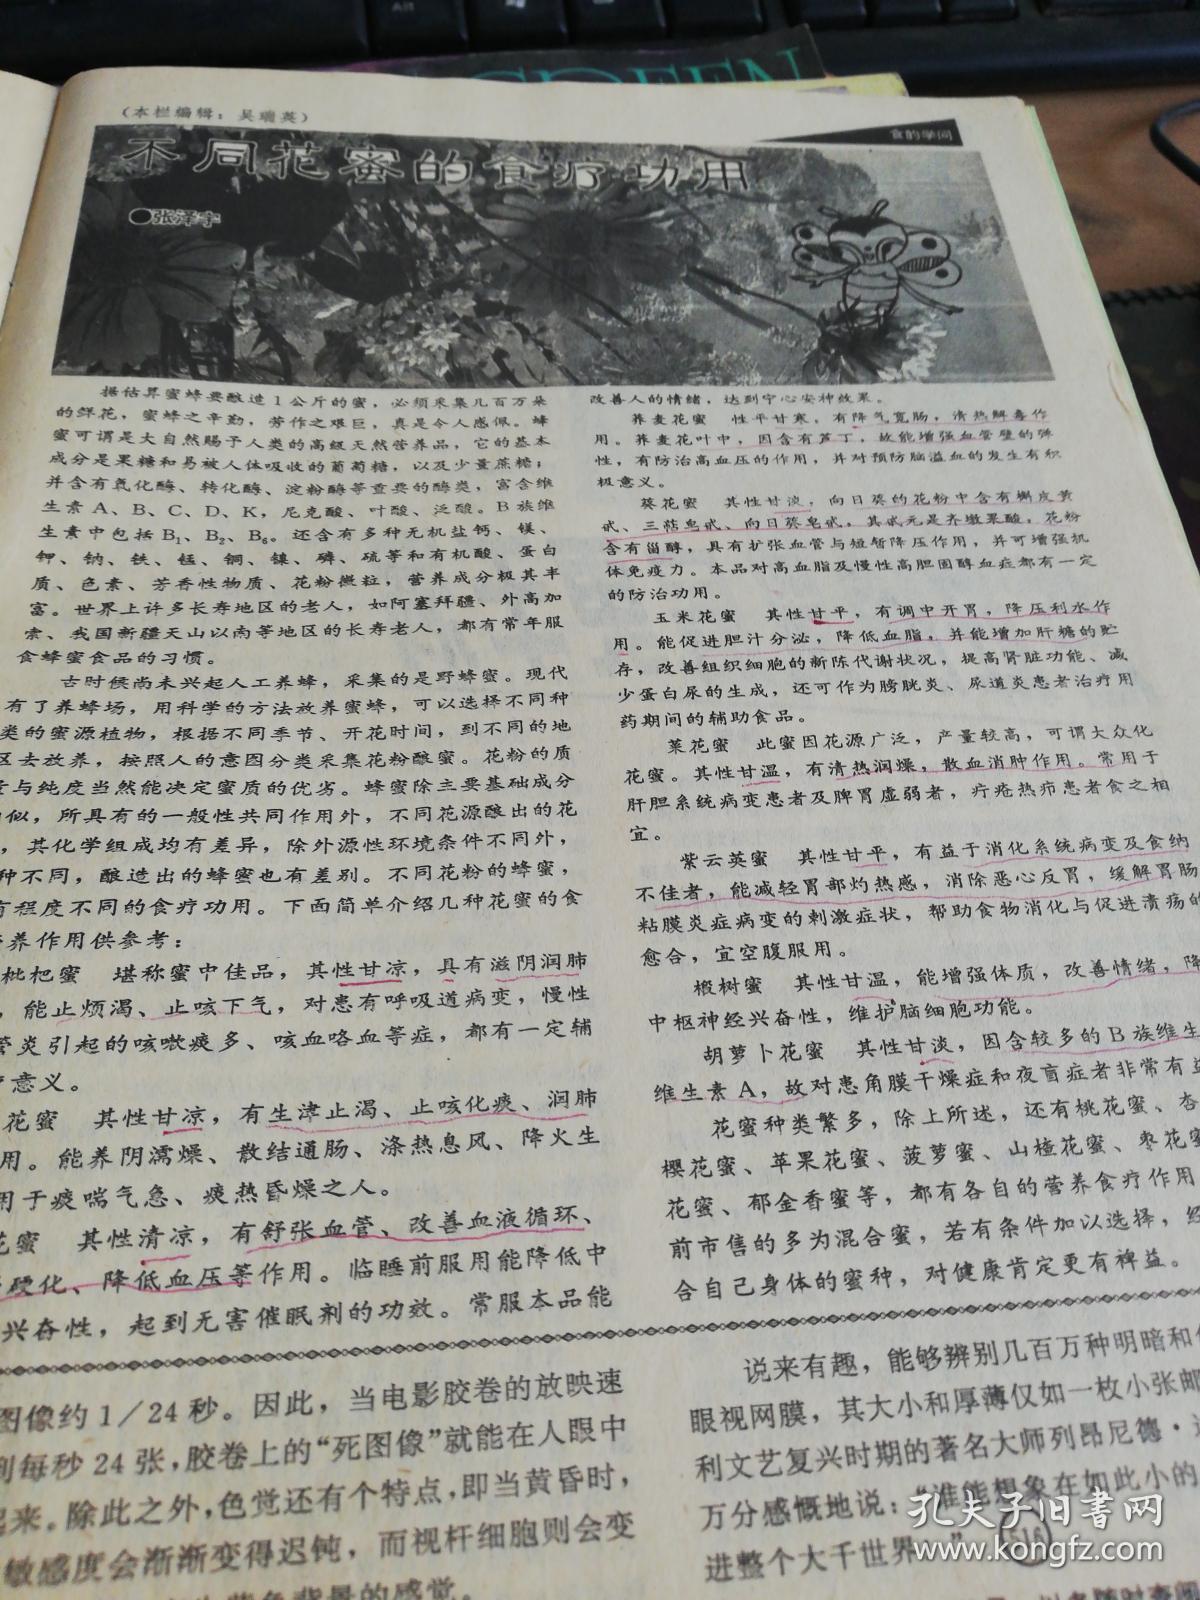 GREEN
(本栏编辑：吴瑞英)
食的学问
不同花蜜的食疗功用
●张泽宇
据估算蜜蜂要酿造1公斤的蜜，必须采集几百万朵
的鲜花，蜜蜂之辛勤，劳作之艰巨，真是令人感佩。蜂
蜜可谓是大自然赐予人类的高级天然营养品，它的基本
成分是果糖和易被人体吸收的葡萄糖，以及少量蔗糖；
并含有氧化酶、转化酶、淀粉酶等重要的酶类，富含维
生素A、B、C、D、K，尼克酸、叶酸、泛酸。B族维
生素中包括B₁、B₂、B₆。还含有多种无机盐钙、镁、
钾、钠、铁、锰、铜、镍、磷、硫等和有机酸、蛋白
质、色素、芳香性物质、花粉微粒，营养成分极其丰
富。世界上许多长寿地区的老人，如阿塞拜疆、外高加
索、我国新疆天山以南等地区的长寿老人，都有常年服
食蜂蜜食品的习惯。
古时候尚未兴起人工养蜂，采集的是野蜂蜜。现代
有了养蜂场，用科学的方法放养蜜蜂，可以选择不同种
类的蜜源植物，根据不同季节、开花时间，到不同的地
区去放养，按照人的意图分类采集花粉酿蜜。花粉的质
与纯度当然能决定蜜质的优劣。蜂蜜除主要基础成分
似，所具有的一般性共同作用外，不同花源酿出的花
，其化学组成均有差异，除外源性环境条件不同外，
种不同，酿造出的蜂蜜也有差别。不同花粉的蜂蜜，
有程度不同的食疗功用。下面简单介绍几种花蜜的食
养作用供参考：
枇杷蜜　堪称蜜中佳品，其性甘凉，具有滋阴润肺
，能止烦渴、止咳下气，对患有呼吸道病变，慢性
管炎引起的咳嗽痰多、咳血咯血等症，都有一定辅
意义。
花蜜　其性甘凉，有生津止渴、止咳化痰、润肺
用。能养阴濡燥、散结通肠、涤热息风、降火生
用于痰喘气急、痰热昏燥之人。
花蜜　其性清凉，有舒张血管、改善血液循环、
硬化、降低血压等作用。临睡前服用能降低中
兴奋性，起到无害催眠剂的功效。常服本品能
改善人的情绪，达到宁心安神效果。
荞麦花蜜　性平甘寒，有降气宽肠，清热解毒作
用。荞麦花叶中，因含有芦丁，故能增强血管壁的弹
性，有防治高血压的作用，并对预防脑溢血的发生有积
极意义。
葵花蜜　其性甘淡，向日葵的花粉中含有槲皮黄
甙、三萜皂甙、向日葵皂甙，其甙元是齐墩果酸，花粉
含有甾醇，具有扩张血管与短暂降压作用，并可增强机
体免疫力。本品对高血脂及慢性高胆固醇血症都有一定
的防治功用。
玉米花蜜　其性甘平，有调中开胃，降压利水作
用。能促进胆汁分泌，降低血脂，并能增加肝糖的贮
存，改善组织细胞的新陈代谢状况，提高肾脏功能、减
少蛋白尿的生成，还可作为膀胱炎、尿道炎患者治疗用
药期间的辅助食品。
菜花蜜　此蜜因花源广泛，产量较高，可谓大众化
花蜜。其性甘温，有清热润燥，散血消肿作用。常用于
肝胆系统病变患者及脾胃虚弱者，疔疮热疖患者食之相
宜。
紫云英蜜　其性甘平，有益于消化系统病变及食纳
不佳者，能减轻胃部灼热感，消除恶心反胃，缓解胃肠
粘膜炎症病变的刺激症状，帮助食物消化与促进溃疡的
愈合，宜空腹服用。
椴树蜜　其性甘温，能增强体质，改善情绪，降
中枢神经兴奋性，维护脑细胞功能。
胡萝卜花蜜　其性甘淡，因含较多的B族维生
维生素A，故对患角膜干燥症和夜盲症者非常有益
花蜜种类繁多，除上所述，还有桃花蜜、杏
樱花蜜、苹果花蜜、菠萝蜜、山楂花蜜、枣花蜜
花蜜、郁金香蜜等，都有各自的营养食疗作用
前市售的多为混合蜜，若有条件加以选择，经
合自己身体的蜜种，对健康肯定更有裨益。
图像约1/24秒。因此，当电影胶卷的放映速
到每秒24张，胶卷上的“死图像”就能在人眼中
起来。除此之外，色觉还有个特点，即当黄昏时，
敏感度会渐渐变得迟钝，而视杆细胞则会变
背景的感觉。
说来有趣，能够辨别几百万种明暗和
眼视网膜，其大小和厚薄仅如一枚小张邮
利文艺复兴时期的著名大师列昂尼德·达
万分感慨地说：“谁能想象在如此小的
进整个大千世界。”
516
孔夫子旧书网
www.kongfz.com